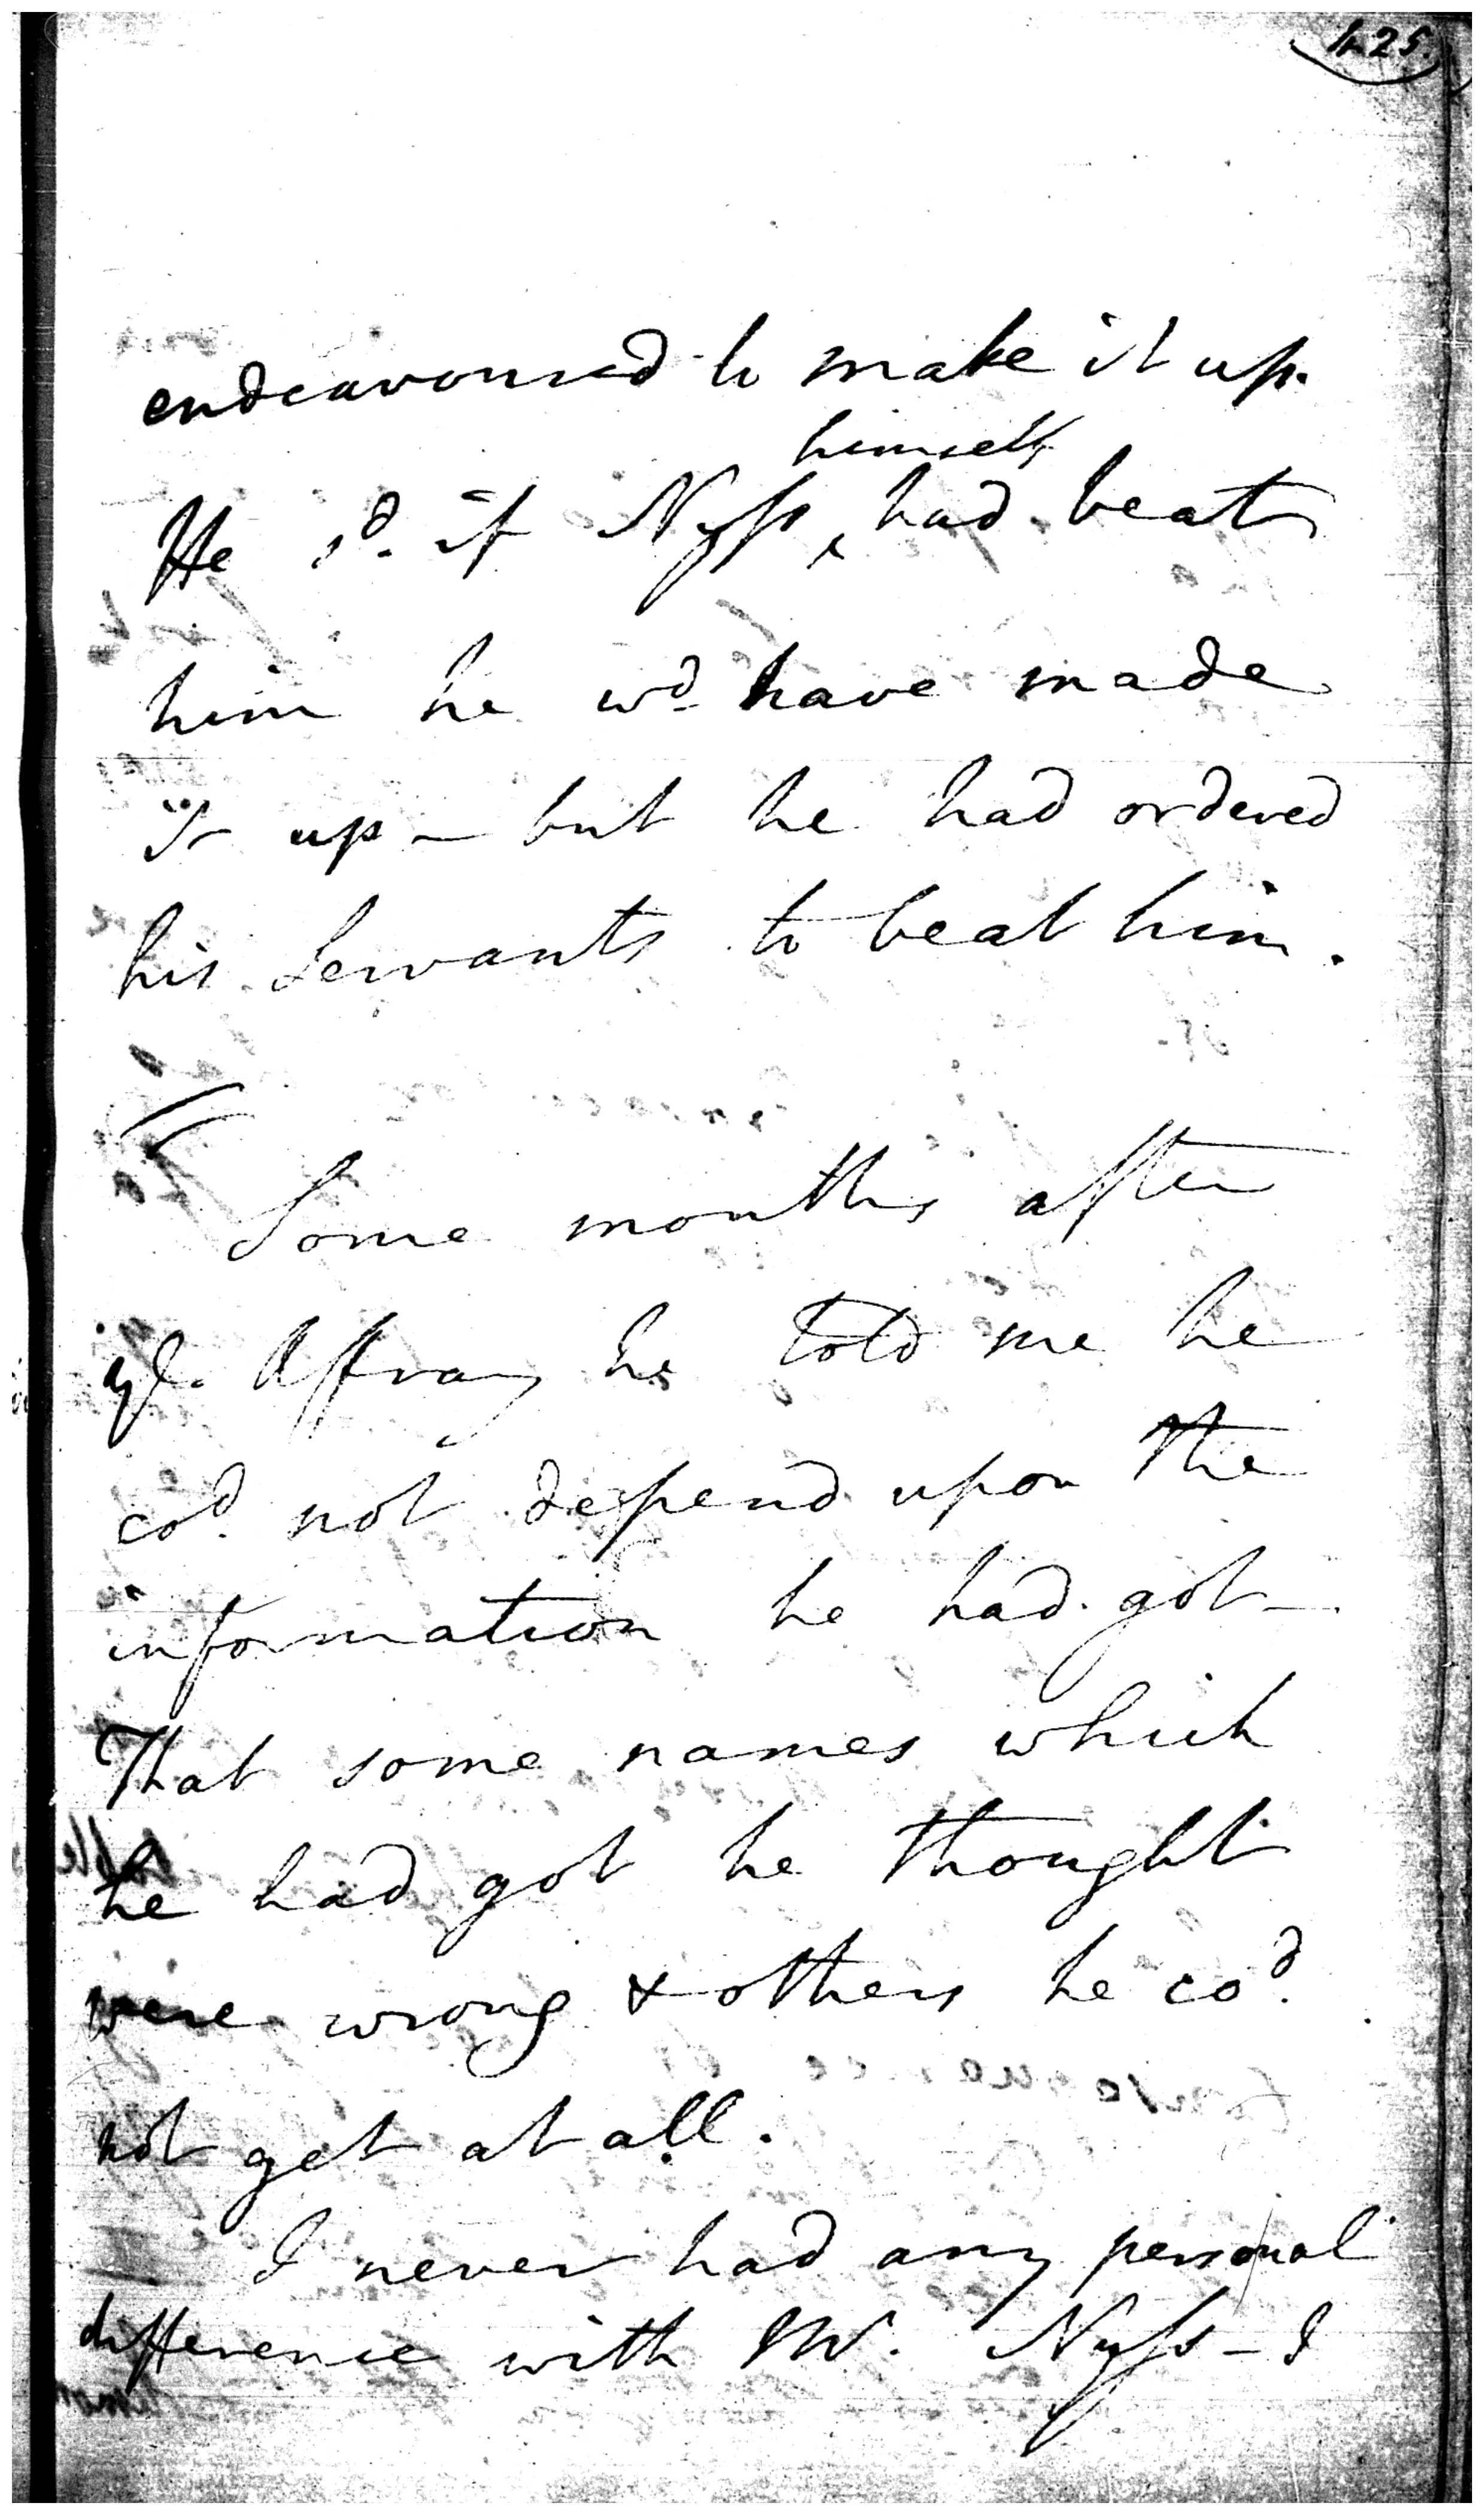 425.
endeavoured to make it up.
himself
He sd. if Nyss ‸ had beat
him he wd have made
it up – but he had ordered
his Servants to beat him.
Some months after
ye. Affray he told me he
cod. not depend upon the
information he had got –
That some names which
he had got he thought
were wrong & others he cod.
not get at all.
I never had any personal
difference with Mr. Nyss – I